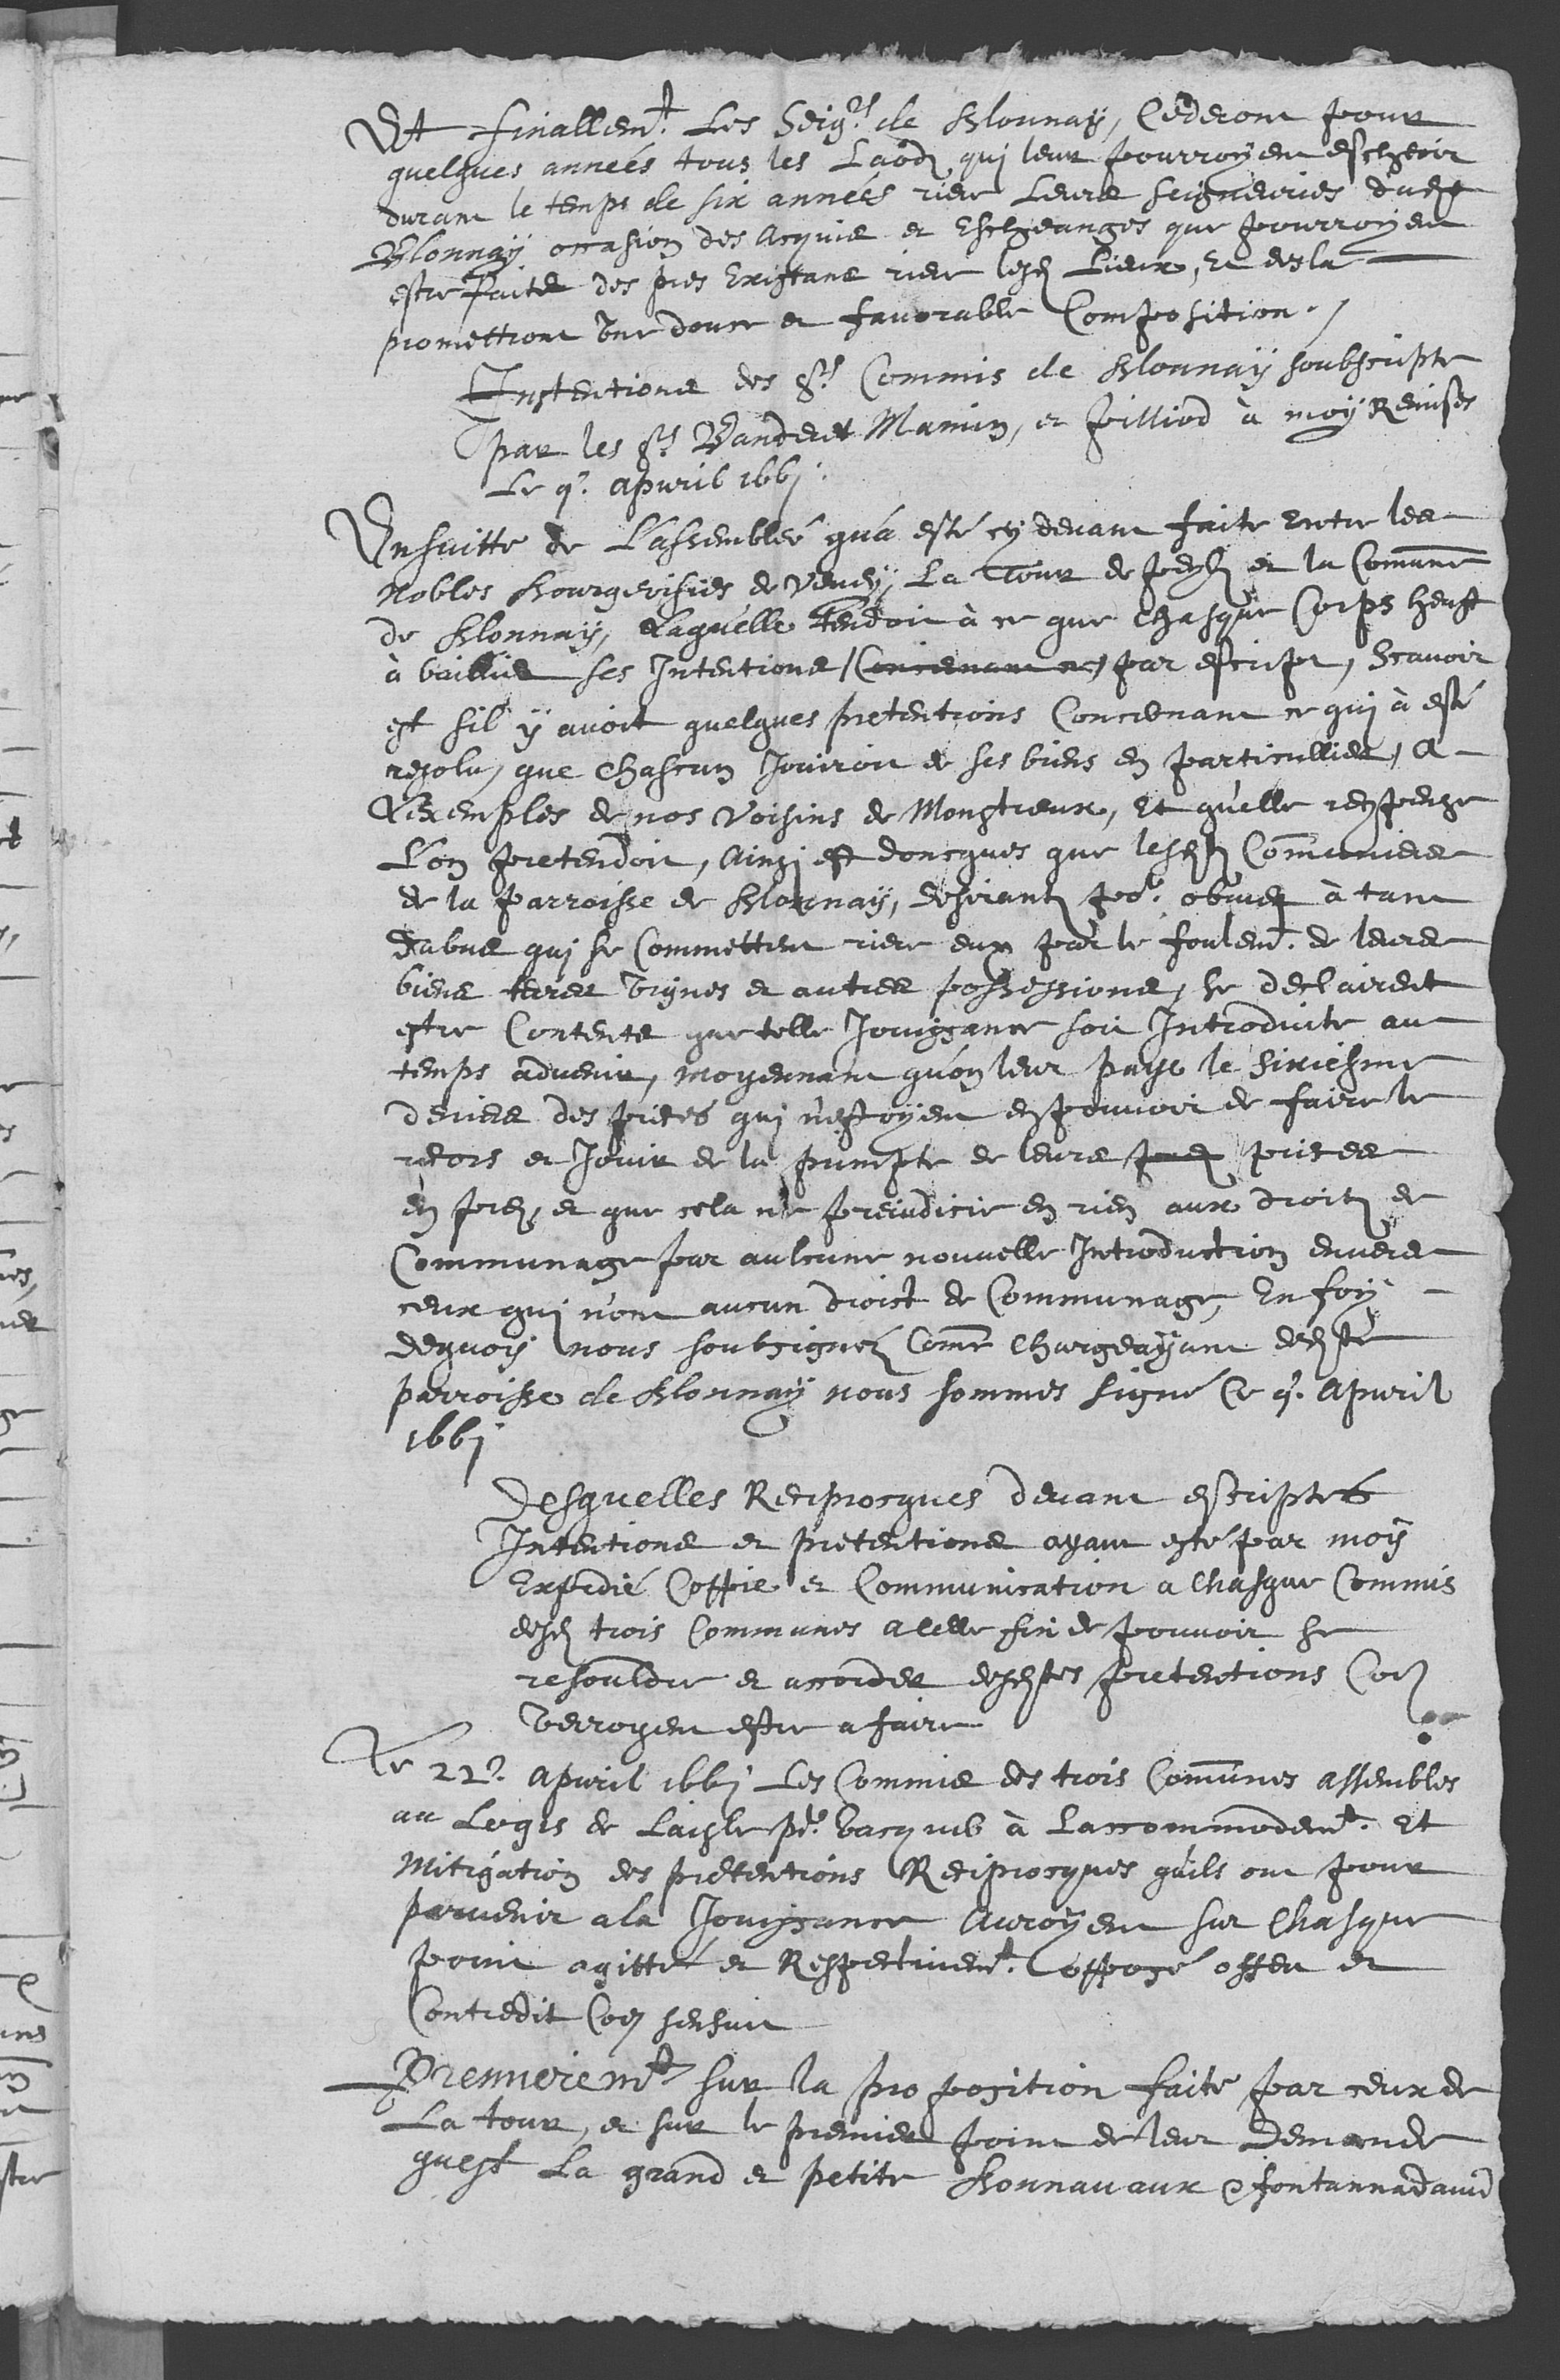 Et finallem.t Les Seig.rs de Blonnay, Cederont pour
quelques années tous les Laodz qui leur pourroyent escheoir
durant le temps de six années riere Leurs seigneuries dudit
Blonnay occasion des Acquis et Escheanges que pourroyent
estre faits des pres Existans riere lesd Lieux, Et desla
promettront une douce et favorable Composition ./
Instentions des s.rs Commis de Blonnay soubscripte
par les s.rs Banderet Mamin, et Pilliod à moy Remises
Le 9.e apvril 1661.
Ensuitte de L'assemblée qu'a esté cy devant faite entre les
Nobles Bourgeoisies de Vevey, La Tour de Peylz et la Comune
de Blonnay, Laquelle tendoit à ce que Chasque Corps heust
à baillier ses Intentions / Concernant ce / par escript, Scavoir
est sil y avoit quelques pretentions Concernant ce qui à esté
resolu, que Chascun Jouiroit de ses biens en particullier, A
L'exemples de nos Voisins de Monstreux, Et qu'elle rescompense
L'on pretendoit, Ainsi est doncques que lesd Comuniers
de la Parroisse de Blonnay, desirantz po.r obvier à tant
d'abus qui se Commettent riere eux par le foulem.t de leurs
biens terres vignes et autres possessions, se declairent
estre Contents que telle Jouissance soit Introduite au
temps advenir, moyennant qu'on leur paye le sixiesme
deniers des pieces qui n'estoyent en pouvoir de faire le
recors et Jouir de la prinpte de leurs prez pieces
en prez, et que cela ne preiudicie en rien aux droitz de
Communage par aulcune nouvelle Introduction envers
ceux qui n'ont aucun droict de Communage, En foy
dequoy nous soubsignez Come Chargeayant de dite
parroisse de Blonnay nous sommes signé Ce 9.e Apvril
1661
Desquelles Reciprocques devant escriptes
Intentions et pretentions ayant esté par moy
Expedié Coppie et Communication a Chasque Commis
desd trois Communes a celle fin de pouvoir se
resouldre et accorder desdites pretentions Coe
verroyent estre a faire
Le 22.e Apvril 1661 Les Commis des trois Comunes assembles
au Logis de Laisle po.r vacquer à Laccommodem.t Et
Mitigation des pretentions Reciprocques qu'ils ont pour
parvenir a la Jouissance Auroyent sur Chasque
point agitté et Respectivem.t opposé offert et
Contredit Coe sensuit
Premierem.t sur la proposition faite par ceux de
La tour, et sur le premier point de leur Demande
quest La grand et petite Bonnavaux & fontannadavid